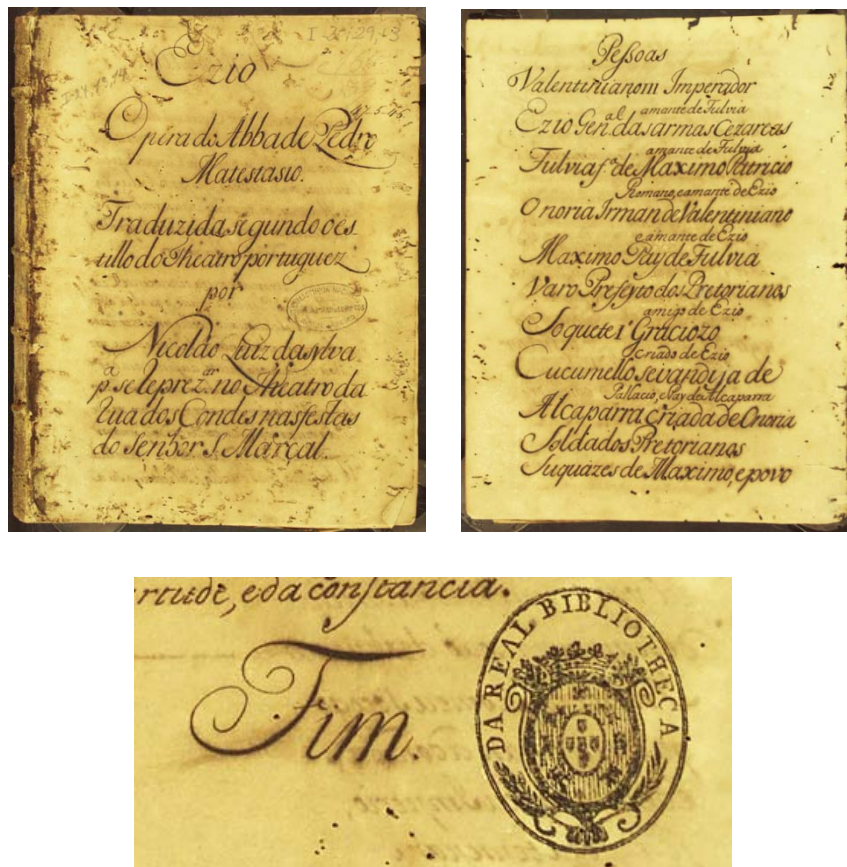 I-
Ezio
47.5.46
Opera do Abbade Pedro
Matestasio.
Traduzida segundo o es
tillo do Theatro portuguez
por
Nicoláo Luiz da sylva
pª. se reprezar. no Theatro da
Rua dos Condes nas festas
do Senhor S. Marçal.
Pessoas
Valentiniano III Imperador
amante de Fulvia
Ezio Gen.al das armas Cezareas
amante de Fulvia
Fulvia fª. de Maximo Patricio
Romano, e amante de Ezio
Onoria Irman de Valentiniano
e amante de Ezio
Maximo Pay de Fulvia
Varo Prefeyto dos Pretorianos
amigo de Ezio
Soquete 1º Graciozo
criado de Ezio
Cucumello sevandija de
Pallacio, e Pay de Alcaparra
Alcaparra criada de Onoria
Soldados Pretorianos
Suquazes de Maximo, e povo
rtude, e da constancia.
Fim.
DA REAL BIBLIOTHECA